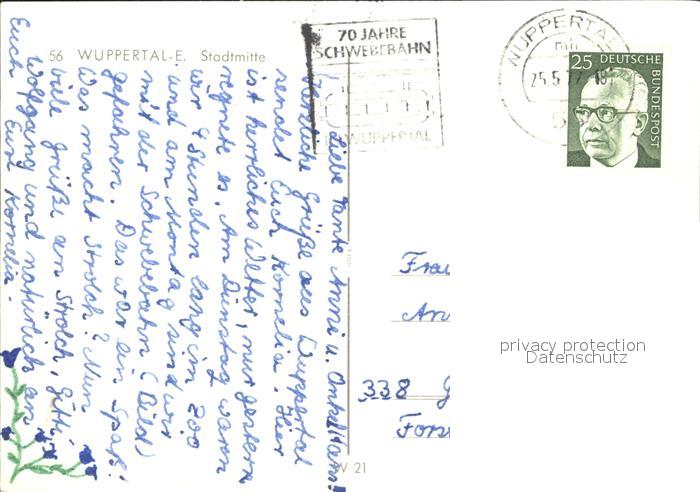 56 WUPPERTAL-E. Stadtmitte
70 JAHRE
SCHWEBEBAHN
IN WUPPERTAL
WUPPERTAL
25.5.72
25 DEUTSCHE
BUNDESPOST
Liebe Tante Anni u. Onkel Hans!
Herzliche Grüße aus Wuppertal
sendet Euch Kornelia. Hier
ist herrliches Wetter, nur gestern
regnete es. Am Dienstag waren
wir 4 Stunden lang im Zoo
und am Montag sind wir
mit der Schwebebahn (Bild)
gefahren. Das war ein Spaß!
Was macht Strolch? Nun
viele Grüße an Strolch, Gitti,
Wolfgang und natürlich an
Euch Eure Kornelia.
Frau
An
338 G
Fors
privacy protection
Datenschutz
W 21